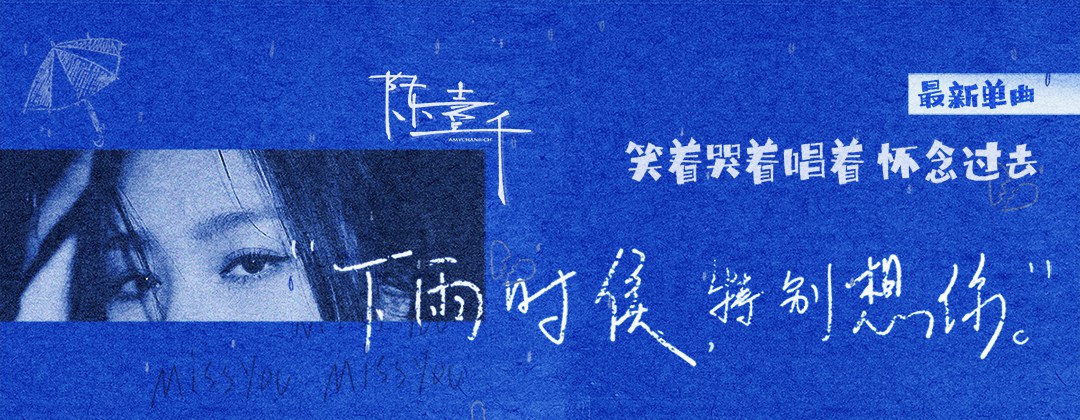 陈壹千
AMYCHANRICH
最新单曲
笑着哭着唱着 怀念过去
"下雨时候,特别想你。"
MissYou MissYou